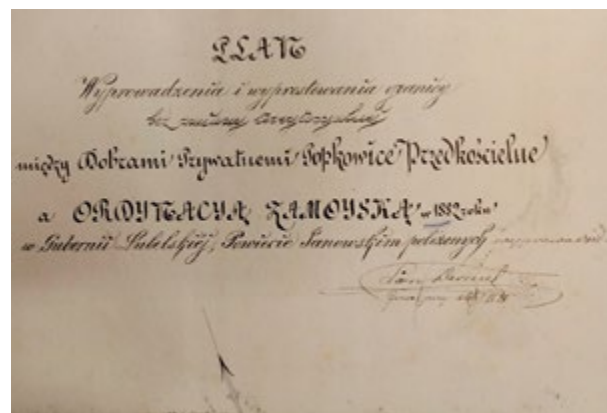 PLAN
Wyprowadzenia i wyprostowania granicy
między Dobrami Prywatnemi Popkowice Przedkościelne
a ORDYNACYA ZAMOYSKA w 1882 roku
w Gubernii Lubelskiéj, Powiecie Janowskim położonych